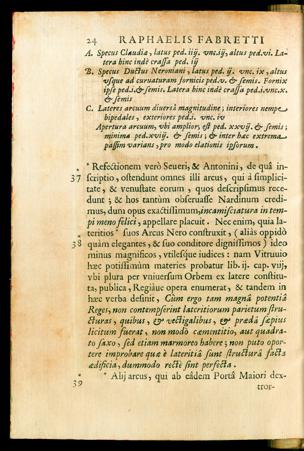 24 RAPHAELIS FABRETTI
A. Specus Claudia, latus ped. iij. vnc. ij, altus ped. vi. La-
tera hinc indè crassa ped. ij
B. Specus Ductus Neromani, latus ped. ij. vnc. ix, altus
vsque ad curuaturam fornicis ped. v. & semis. Fornix
ipse ped. i. & semis. Latera hinc indè crassa ped. i. vnc. x.
& semis
C. Lateres arcuum diversæ magnitudine; interiores nempe
bipedales, exteriores ped. i. vnc. iv
Apertura arcuum, vbi amplior, est ped. xxvij. & semis;
minima ped. xviij. & semis; & inter hæc extrema
passim varians, pro modo elationis ipsorum.
* Refectionem verò Seueri, & Antonini, de quâ in-
37 scriptio, ostendunt omnes illi arcus, qui à simplicí-
tate, & venustate eorum, quos descripsimus rece-
dunt; & hos tantùm obseruasse Nardinum credi-
mus, dum opus exactissimum, incamisciatura in tem-
pi meno felici, appellare placuit. Nec enim, quia la-
teritios * suos Arcus Nero construxit, (aliàs oppidò
38 quàm elegantes, & suo conditore dignissimos) ideo
minus magnificos, vtilesque iudices: nam Vitruuio
hæc potissimùm materies probatur lib. ij. cap. viij,
vbi plura per vniuersum Orbem ex latere constitu-
ta, publica, Regiàue opera enumerat, & tandem in
hæc verba definit, Cùm ergo tam magnâ potentiâ
Reges, non contempserint lateritiorum parietum stru-
cturas, quibus, & vectigalibus, & prædâ sæpius
licitum fuerat, non modò cæmentitio, aut quadra-
to saxo, sed etiam marmoreo habere; non puto opor-
tere improbare quæ è lateritiâ sunt structurâ facta
ædificia, dummodo rectè sint perfecta.
* Alij arcus, qui ab eâdem Portâ Maiori dex-
39 tror-